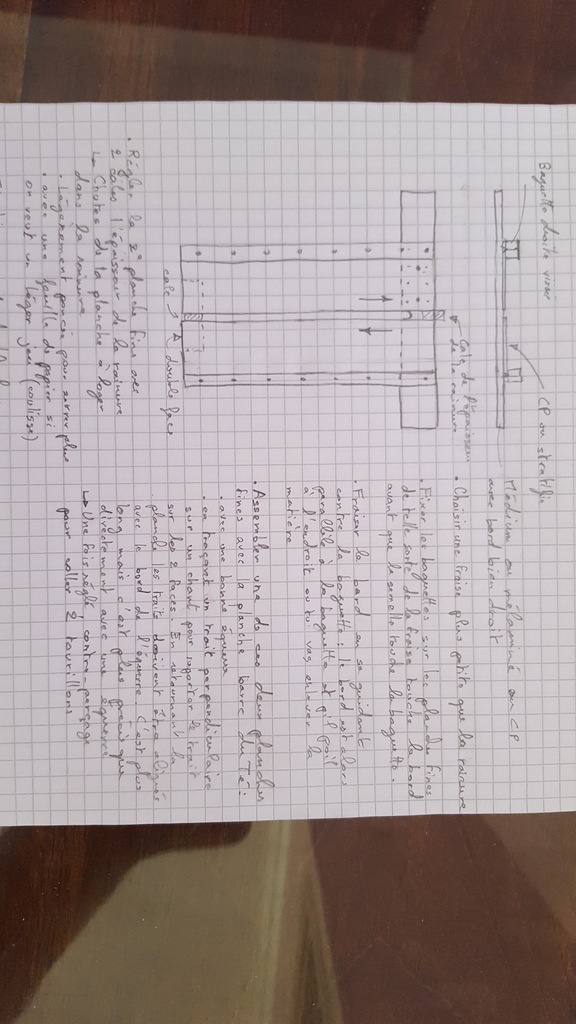 Baguette droite vissée
CP ou stratifié
Médium ou mélaminé ou CP
avec bord bien droit
• Choisir une fraise plus petite que la rainure
• Fixer les baguettes sur les planches fines
de telle sorte de la fraise touche le bord
avant que la semelle touche la baguette.
• Fraiser le bord en se guidant
contre la baguette : le bord est alors
parallèle à la baguette et pil poil
à l'endroit où tu vas enlever la
matière
• Assembler une de ces deux planches
fines avec la planche barre du Té :
• avec une bonne équerre
• en traçant un trait perpendiculaire
sur un chant pour reporter le trait
sur les 2 faces. En retournant la
planche les traits doivent être alignés
avec le bord de l'équerre. C'est plus
long mais c'est plus précis que
directement avec une équerre
↳ Une fois réglé, contre-perçage
pour coller 2 tourillons
cale de l'épaisseur
de la rainure
cale
A double face
• Régler la 2e planche fine avec
2 cales l'épaisseur de la rainure
↳ Chutes de la planche à loger
dans la rainure
• Légèrement poncée pour serrer plus
• avec une feuille de papier si
on veut un léger jeu (coulisse)